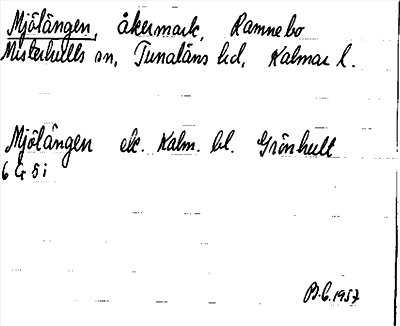 Mjölängen, åkermark, Ramnebo
Misterhults sn, Tunaläns hd, Kalmar l.
Mjölängen ek. Kalm. bl. Grönhult
6 G 5 i
B.C. 1957